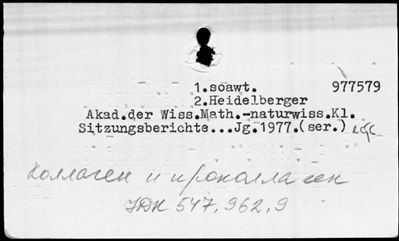 1.soawt. 977579
2.Heidelberger
Akad.der Wiss.Math.-naturwiss.Kl.
Sitzungsberichte...Jg.1977.(ser.)
Коллаген и проколлаген
УДК 547.962.9